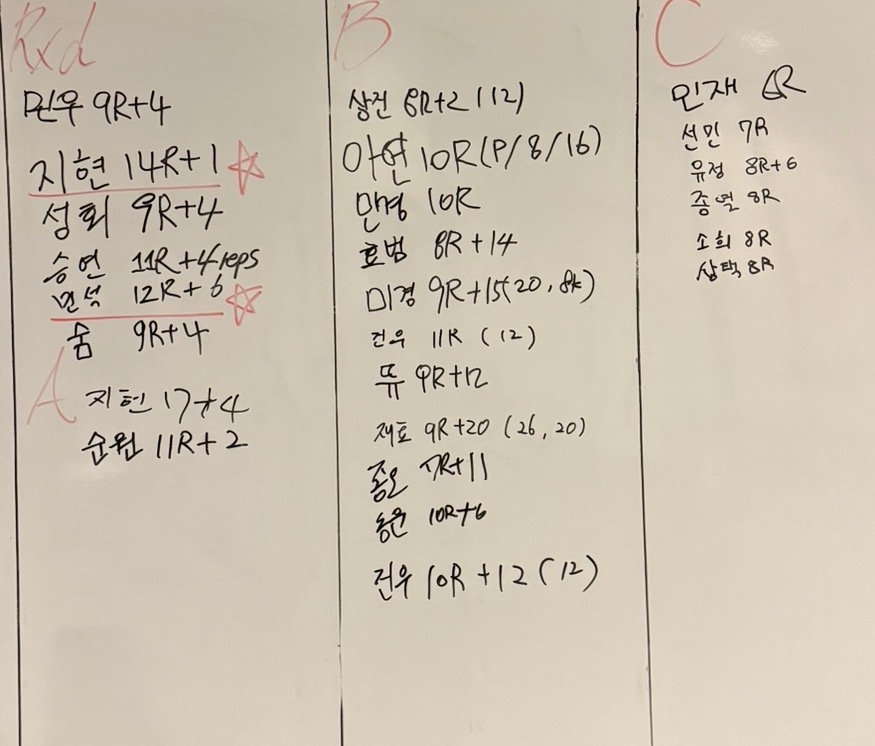 Rxd
민우 9R+4
지현 14R+1
성희 9R+4
승연 11R+4reps
민석 12R+6
숨 9R+4
A
지현 17+4
순원 11R+2
B
상진 8R+2 (12)
아연 10R(P/8/16)
민경 10R
효범 8R+14
미경 9R+15(20, 8k)
건우 11R (12)
뜌 9R+12
재호 9R+20 (26, 20)
종오 7R+11
동운 10R+6
건우 10R+12 (12)
C
민재 6R
선민 7R
유정 8R+6
종열 8R
소희 8R
상택 8R